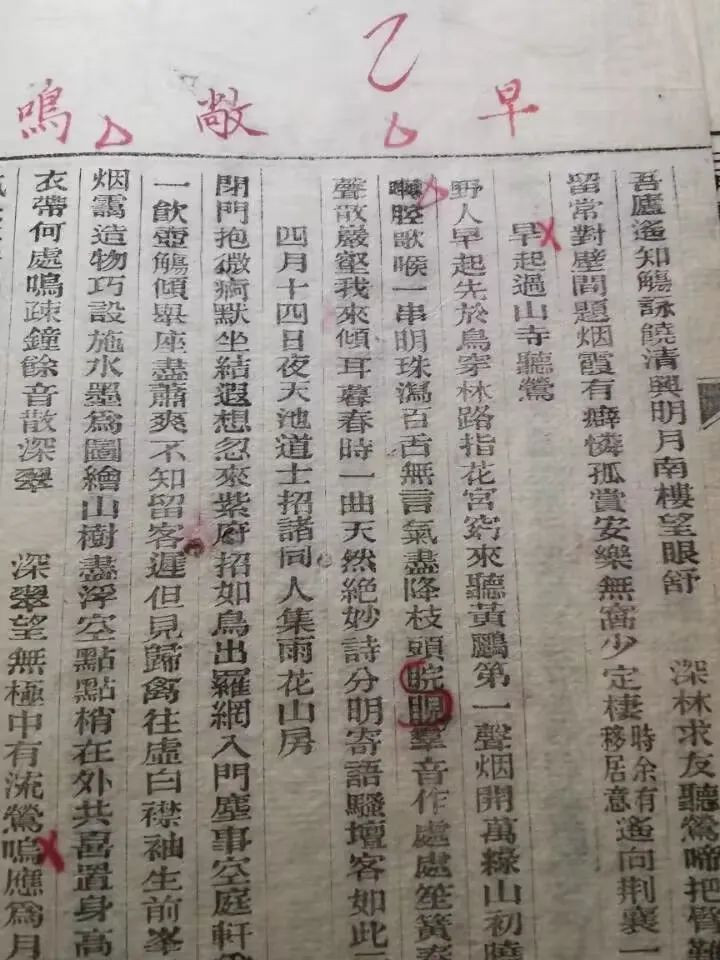 早
乙
敞
鳴
吾廬遙知觴詠饒清興明月南樓望眼舒 深林求友聽鶯啼把臂難
留常對壁間題烟霞有癖憐孤賞安樂無窩少定棲時余有移居意遙向荆襄一
早起過山寺聽鶯
野人早起先於鳥穿林路指花宮窈來聽黃鸝第一聲烟開萬綠山初曉
腔歌喉一串明珠瀉百舌無言氣盡降枝頭睍睆羣音作處處笙簧奏
聲散巖壑我來傾耳暮春時一曲天然絕妙詩分明寄語騷壇客如此
四月十四日夜天池道士招諸同人集雨花山房
閉門抱微痾默坐結遐想忽來紫府招如鳥出羅網入門塵事空庭軒
一飲壺觴傾舉座盡蕭爽不知留客遲但見歸禽往虛白襟袖生前峯
烟靄造物巧設施水墨爲圖繪山樹盡浮空點點梢在外共喜置身高
衣帶何處鳴疎鐘餘音散深翠 深翠望無極中有流鶯嗚應爲月